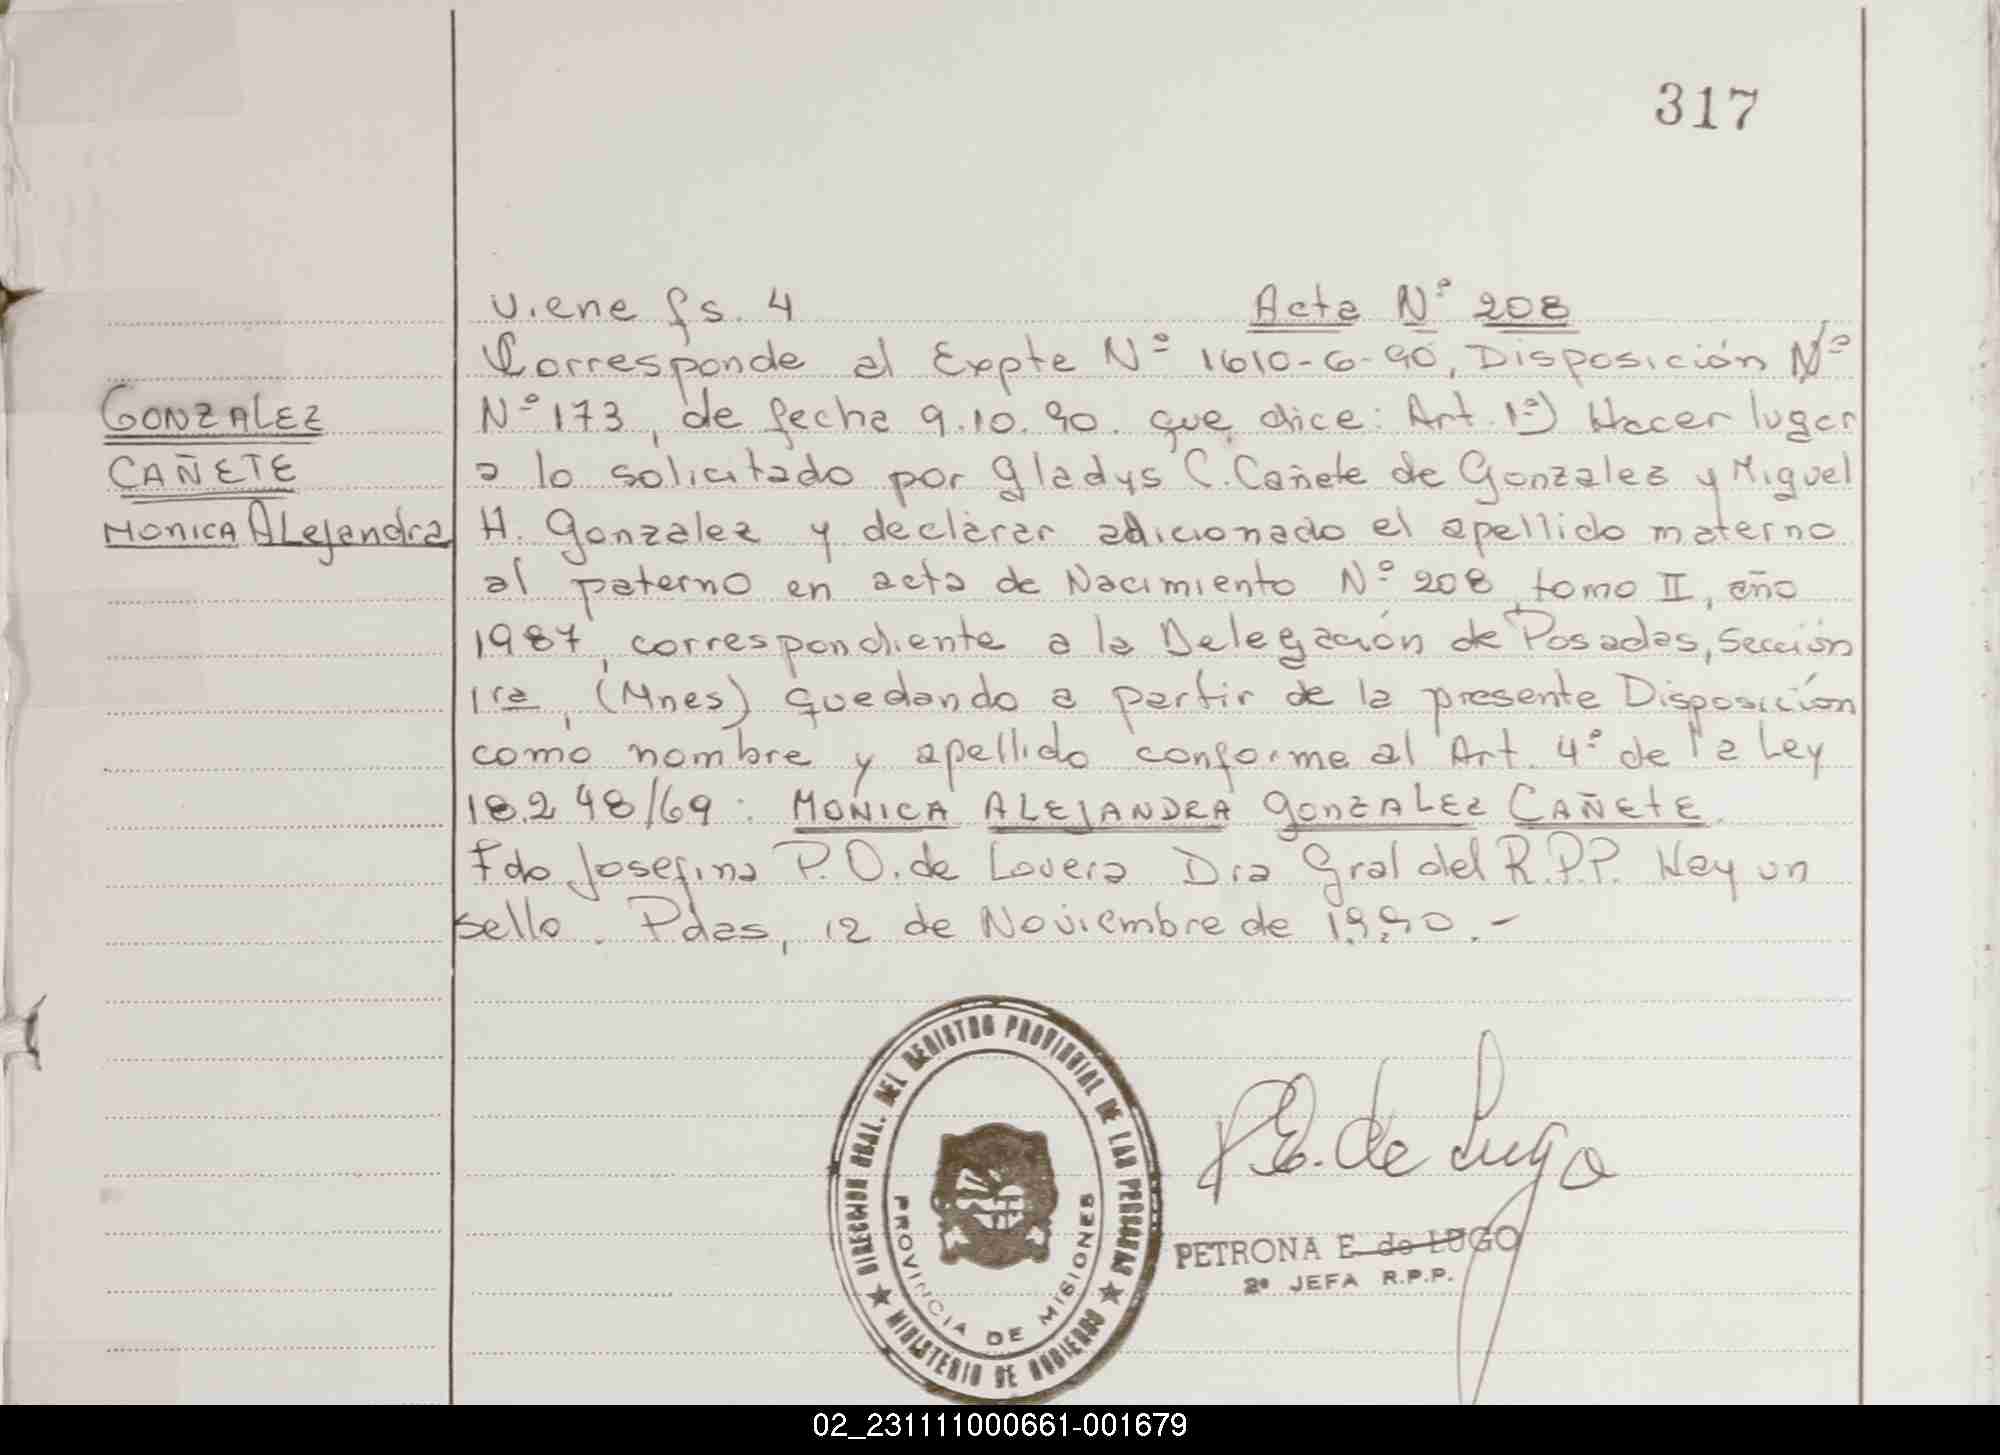 317
viene fs. 4 Acta Nº 208
GONZALEZ
CAÑETE
MONICA ALejandra
Corresponde al Expte Nº 1610-G-90, Disposición Nº
Nº 173, de fecha 9.10.90. que dice: Art. 1º) Hacer lugar
a lo solicitado por Gladys C. Cañete de Gonzalez y Miguel
H. Gonzalez y declarar adicionado el apellido materno
al paterno en acta de Nacimiento Nº 208, tomo II, año
1987, correspondiente a la Delegación de Posadas, Sección
1ra, (Mnes) quedando a partir de la presente Disposición
como nombre y apellido conforme al Art. 4º de la Ley
18.248/69: MONICA ALEJANDRA GONZALEZ CAÑETE.
Fdo Josefina P. O. de Lovera Dra Gral del R.P.P. Hay un
sello. Pdas, 12 de Noviembre de 1990.-
DIRECCION GRAL. DEL REGISTRO PROVINCIAL DE LAS PERSONAS
PROVINCIA DE MISIONES
★ MINISTERIO DE GOBIERNO ★
P.E. de Lugo
PETRONA E. de LUGO
2º JEFA R.P.P.
02_231111000661-001679